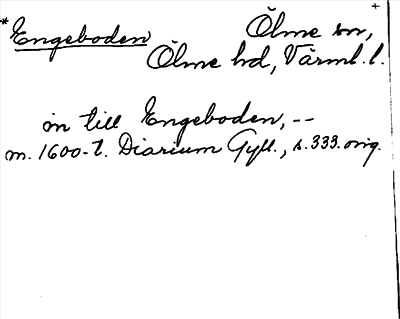 *Engeboden Ölme sn, +
Ölme hd, Värml. l.
in till Engeboden, --
m. 1600-t. Diarium Gyll., s. 333. orig.